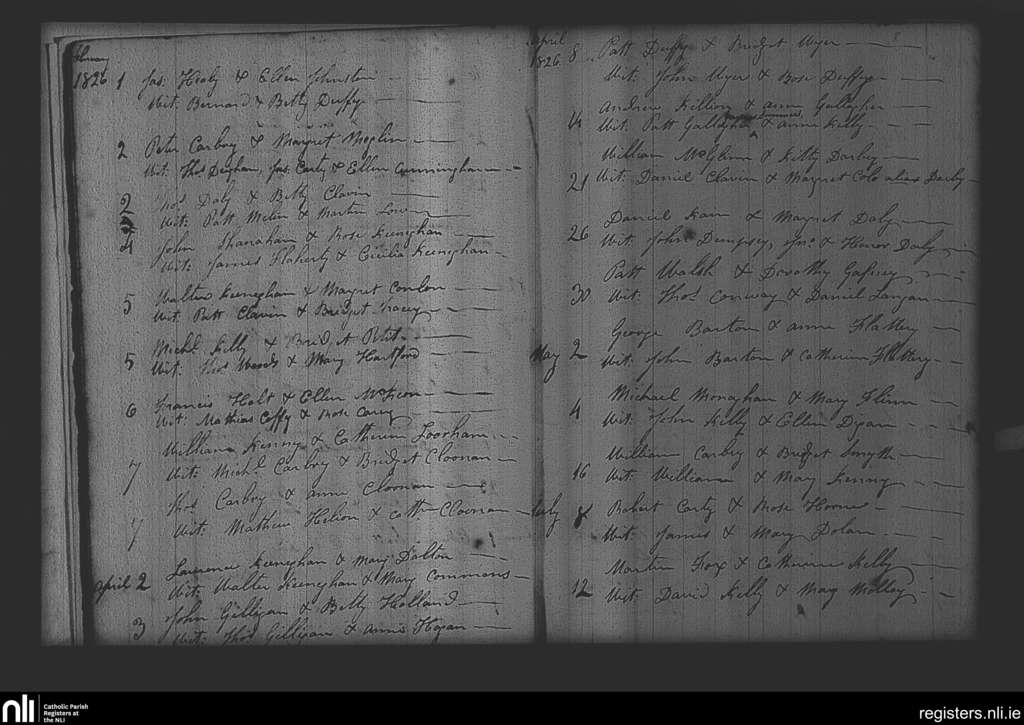 February
1826 1 Jas. Healy & Ellen Johnston
Wit: Bernard & Betty Duffy
2 Peter Carbry & Margret
Wit: Thos Deighan, Jas. Carty & Ellen Cunningham
2 Thos Daly & Betty Clavin
Wit: Patt & Martin
4 John Shanahan & Rose Keeneghan
Wit: James Flaherty & Cecilia Keeneghan
5 Walter Keeneghan & Margret Conlon
Wit: Patt Clavin & Bridget Tracey
5 Michl. Kelly & Bridget Petit
Wit: Thos Woods & Mary Hartford
6 Francis Holt & Ellen
Wit: Mathias Coffy & Rose Carey
7 William Kenny & Catherine
Wit: Michl. Carbry & Bridget Cloonan
7 Thos Carbry & Anne Cloonan
Wit: Mathew & Cathn Cloonan
April 2 Laurence Keeneghan & Mary Dalton
Wit: Walter Keeneghan & Mary Commons
3 John Gilligan & Betty Holland
Wit: Thos Gilligan & Anne Hogan
April
1826 8 Patt Duffy & Bridget Myer
Wit: John Myer & Rose Duffy
Andrew Killion & Anne Gallagher
Wit: Patt Gallagher & Anne Kelly
William McGlinn & Kitty Darby
21 Wit: Daniel Clavin & Margret Cole alias Darby
Daniel Kain & Margret Daly
26 Wit: John Dempsey, Jno. & Honor Daly
Patt Walsh & Dorothy Gafney
30 Wit: Thos Conway & Daniel Langan
George Barton & Anne Flattery
May 2 Wit: John Barton & Catherine Flattery
Michael Monaghan & Mary Flinn
4 Wit: John Kelly & Ellen
William Carbry & Bridget Smyth
16 Wit: William & Mary Kenny
July 8 Robert Carty & Rose
Wit: James & Mary Dolan
Martin Fox & Catherine Kelly
12 Wit: David Kelly & Mary Molloy
nli
Catholic Parish
Registers at
the NLI
registers.nli.ie